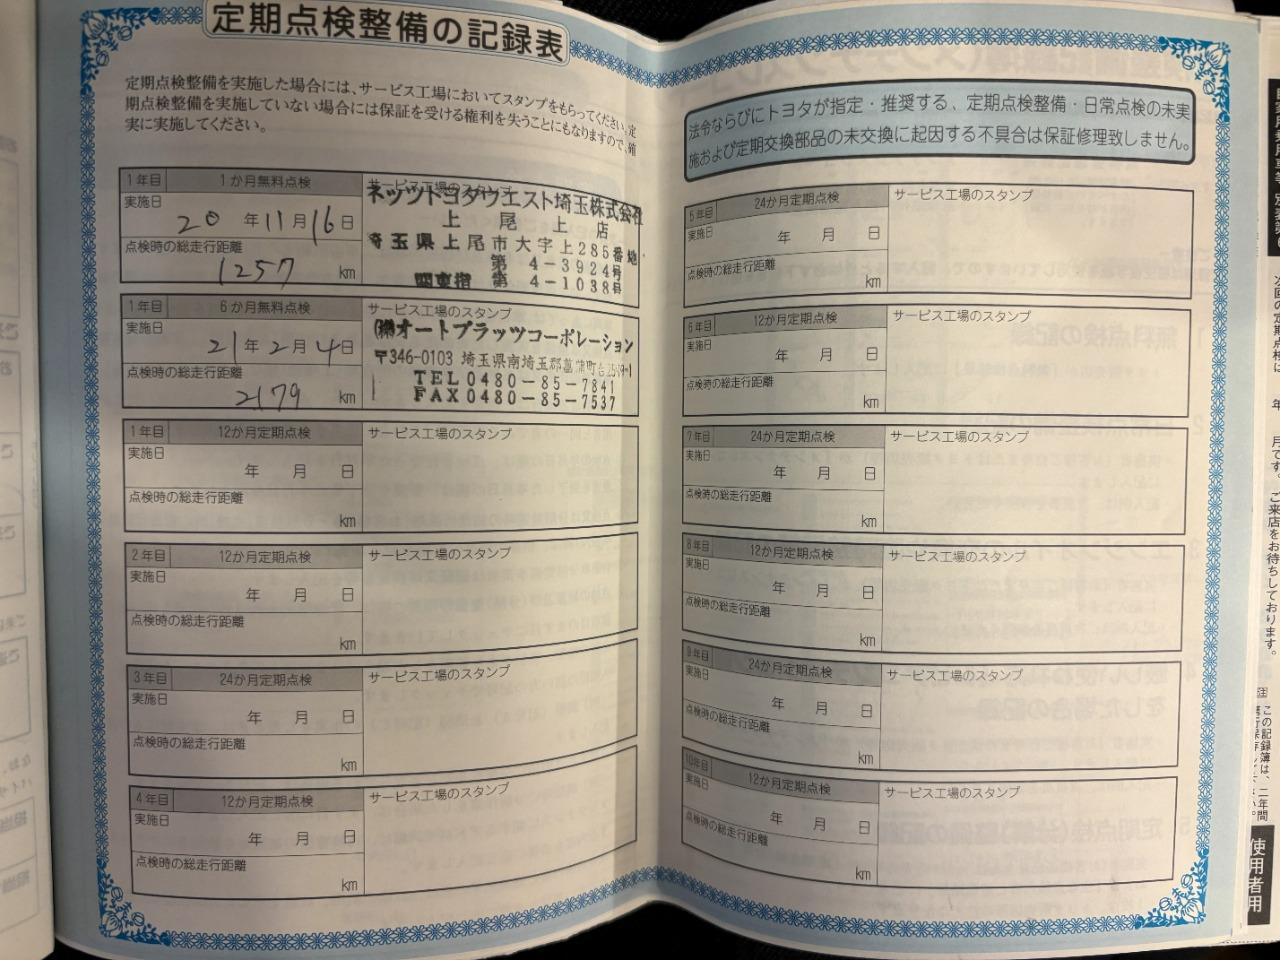 定期点検整備の記録表
定期点検整備を実施した場合には、サービス工場においてスタンプをもらってください。定
期点検整備を実施していない場合には保証を受ける権利を失うことにもなりますので、確
実に実施してください。
1年目 1か月無料点検 サービス工場のスタンプ
実施日
20年11月16日
点検時の総走行距離
1257 km
ネッツトヨタウエスト埼玉株式会社
上尾上店
埼玉県上尾市大字上285番地
第4-3924号
関東指 第4-1038号
1年目 6か月無料点検 サービス工場のスタンプ
実施日
21年2月4日
点検時の総走行距離
2179 km
㈱オートプラッツコーポレーション
〒346-0103 埼玉県南埼玉郡菖蒲町
TEL0480-85-7841
FAX0480-85-7537
1年目 12か月定期点検 サービス工場のスタンプ
実施日
年 月 日
点検時の総走行距離
km
2年目 12か月定期点検 サービス工場のスタンプ
実施日
年 月 日
点検時の総走行距離
km
3年目 24か月定期点検 サービス工場のスタンプ
実施日
年 月 日
点検時の総走行距離
km
4年目 12か月定期点検 サービス工場のスタンプ
実施日
年 月 日
点検時の総走行距離
km
法令ならびにトヨタが指定・推奨する、定期点検整備・日常点検の未実
施および定期交換部品の未交換に起因する不具合は保証修理致しません。
5年目 24か月定期点検 サービス工場のスタンプ
実施日
年 月 日
点検時の総走行距離
km
6年目 12か月定期点検 サービス工場のスタンプ
実施日
年 月 日
点検時の総走行距離
km
7年目 24か月定期点検 サービス工場のスタンプ
実施日
年 月 日
点検時の総走行距離
km
8年目 12か月定期点検 サービス工場のスタンプ
実施日
年 月 日
点検時の総走行距離
km
9年目 24か月定期点検 サービス工場のスタンプ
実施日
年 月 日
点検時の総走行距離
km
10年目 12か月定期点検 サービス工場のスタンプ
実施日
年 月 日
点検時の総走行距離
km
次回の定期点検は 年 月です。ご来店をお待ちしております。
この記録簿は、二年間
使用者用